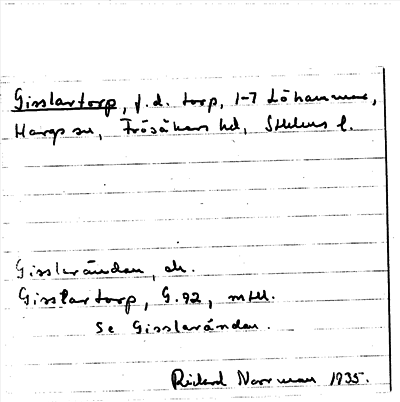 Gisslartorp, f.d. torp, 1-7 Löhammar,
Hargs sn, Frösåkers hd, Sthlms l.
Gisslaråndan, ak.
Gisslartorp, G.92, mtll.
Se Gisslaråndan.
Rickard Norrman 1935.